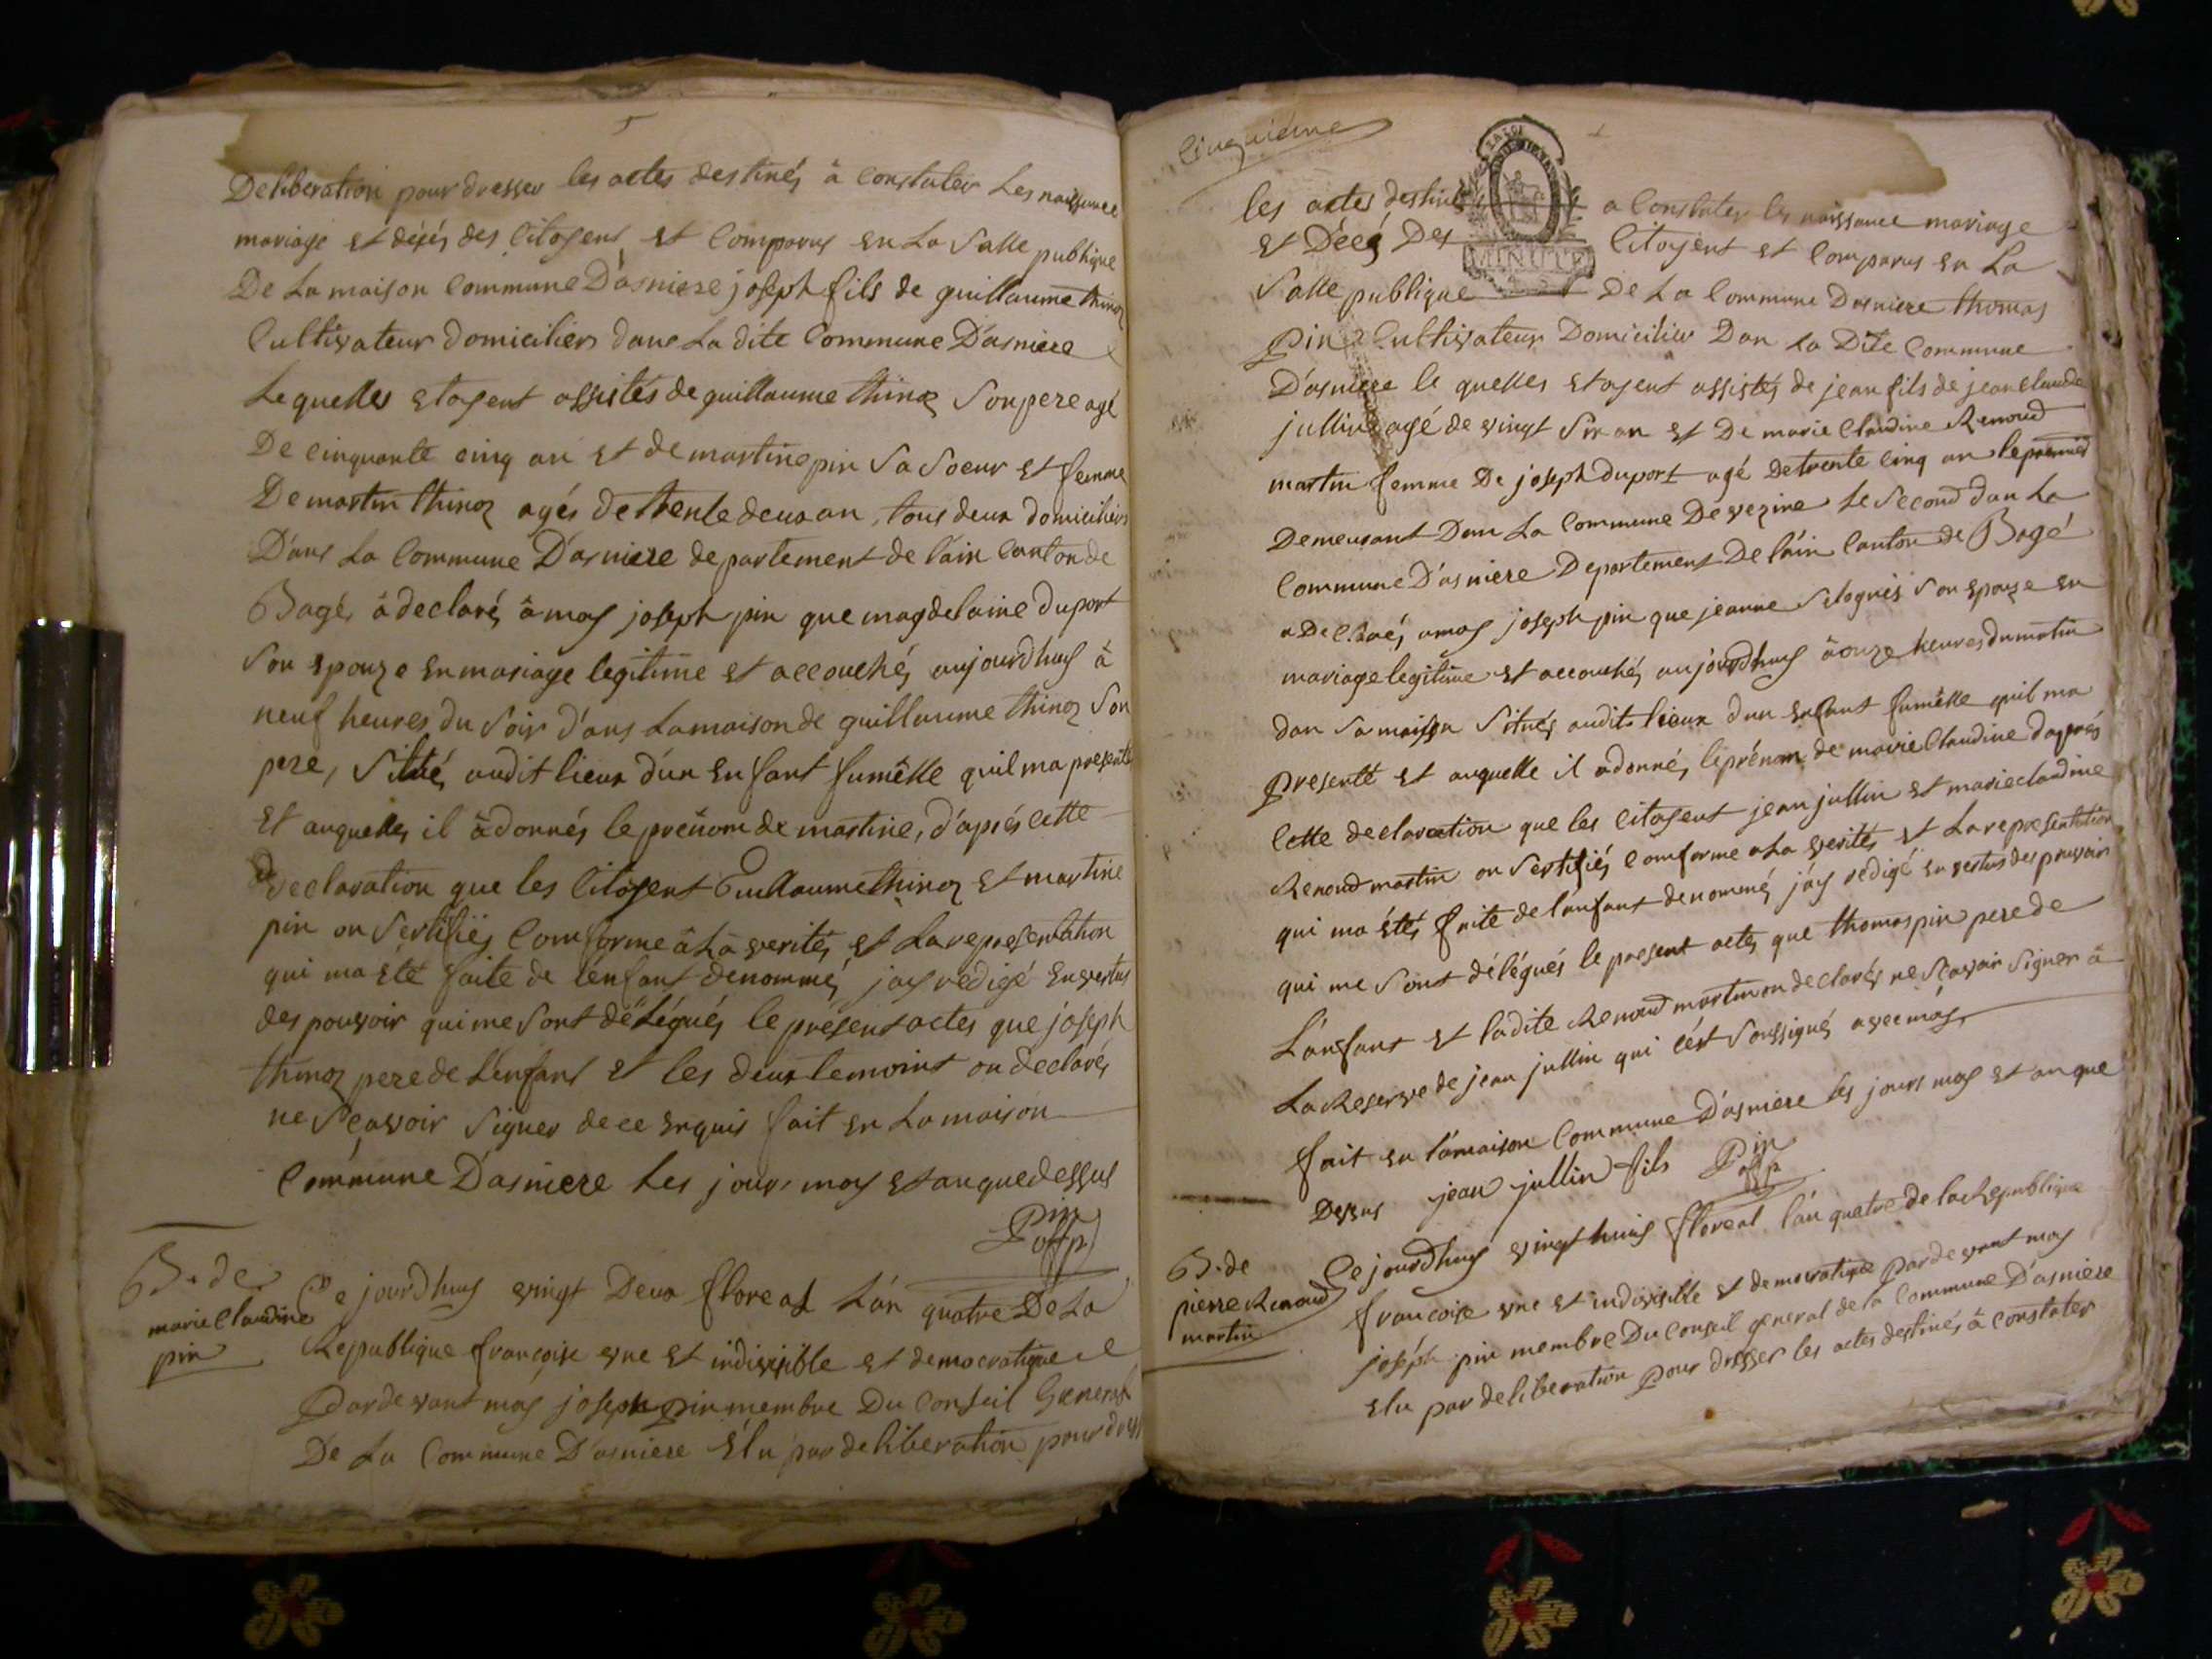 Deliberation pour dresser les actes destinés â constater Les naissance
mariage et déjés des Citoyens et Comparus en La Salle publique
De La maison Commune D'asniere joseph fils de guillaume thinoz
Cultivateur domicilier dans La dite Commune D'asniere
Lequelles etoyent assistés de guillaume thinoz Son pere agé
De cinquante cinq an et de martine pin Sa Soeur et femme
De martin thinoz agés de trente deux an, tous deux domiciliers
D'ans La Commune D'asniere departement de l'ain Canton de
Bagé, â declaré, â moy joseph pin que magdelaine duport
Son epouze en mariage legitime et accouché, aujourdhuy â
neuf heures du Soir d'ans La maison de guillaume thinoz Son
pere, Situé, audit lieux d'un enfant fumêlle quil ma presenté
Et auquelles il â donnés le prénom de martine, d'aprés cette
declaration que les Citoyent Guillaume thinoz et martine
pin on Sertifiés Comforme â La verités et La representation
qui ma été faite de lénfant denommé, jay redigé en vertus
des pouvoir qui me Sont délégués le present actes que joseph
thinoz pere de Lénfant et les deux temoins on declarés
ne Sçavoir Signer de ce enquis fait en La maison
Commune D'asniere Les jours moy et an que dessus
Pin
off p
B. de
marie Claudine
pin
Ce jourdhuy vingt Deux floreal L'án quatre De La
Republique françoise vne et indivisible et democratique
Pardevant moy joseph pin membre Du Conseil General
De La Commune D'asniere Élu par deliberation pour dress
Cinquiéme
les actes destinés a Constater les naissance mariage
et Décé, Des Citoyent et Comparus en La
Salle publique De La Commune Dasniere thomas
Pin Cultivateur Domicilier Dan La Dite Commune
MINUTE
D'asniere le quelles etoyent assistés de jean fils de jean claude
jullin agé de vingt Six an et De marie Claudine Renoud
martin femme De joseph duport agé de trente cinq an le premier
Demeurant Dan La Commune De vezine Le Second dan La
Commune D'asniere Departement De l'áin Canton de Bagé
a Declaré, a moy joseph pin que jeanne Son epouze en
mariage legitime et accouché, aujourdhuy â onze heures du matin
dan Sa maison Situés audit lieux dun enfant fumêlle quil ma
presenté et auquelle il a donné, le prénom de marie Claudine d'aprés
Cette declaration que les Citoyent jean jullin et marie claudine
Renoud martin on Sertifiés Comforme a La verités et La representation
qui ma étés faite de lanfant denommé, j'ay redigé en vertus des pouvoir
qui me Sont délégués le present actes que thomas pin pere de
L'anfant et ladite Renoud martin on declarés ne Sçavoir Signer â
La Reserve de jean jullin qui cést Soussigné, avec móy
fait en la maison Commune D'asniere les jours moy et an que
Dessus jean jullin fils Pin
off p
B. de
pierre Renoud
martin
Ce jourdhuy vingt huis floreal l'án quatre de la Republique
françoise vne et indivisible et democratique pardevant moy
joséph pin membre Du Conseil general de la Commune D'asniere
elu par deliberation pour dresser les actes destinés â constater